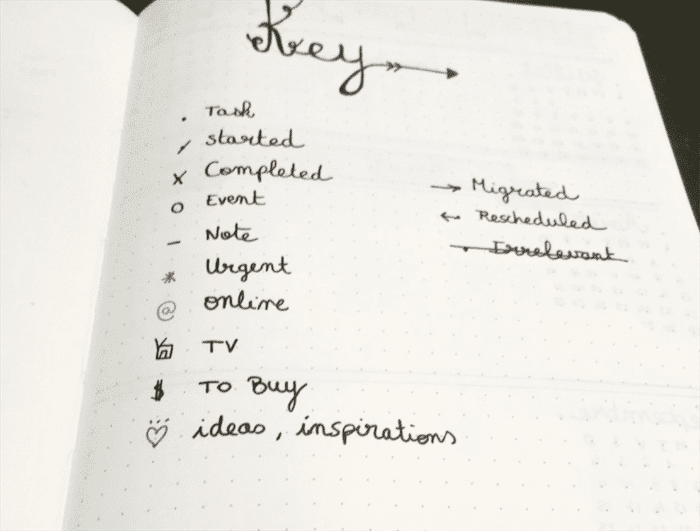 Key
. Task
/ started
x Completed
o Event
- Note
* Urgent
@ online
TV
$ TO Buy
ideas, inspirations
→ Migrated
← Rescheduled
• Irrelevant